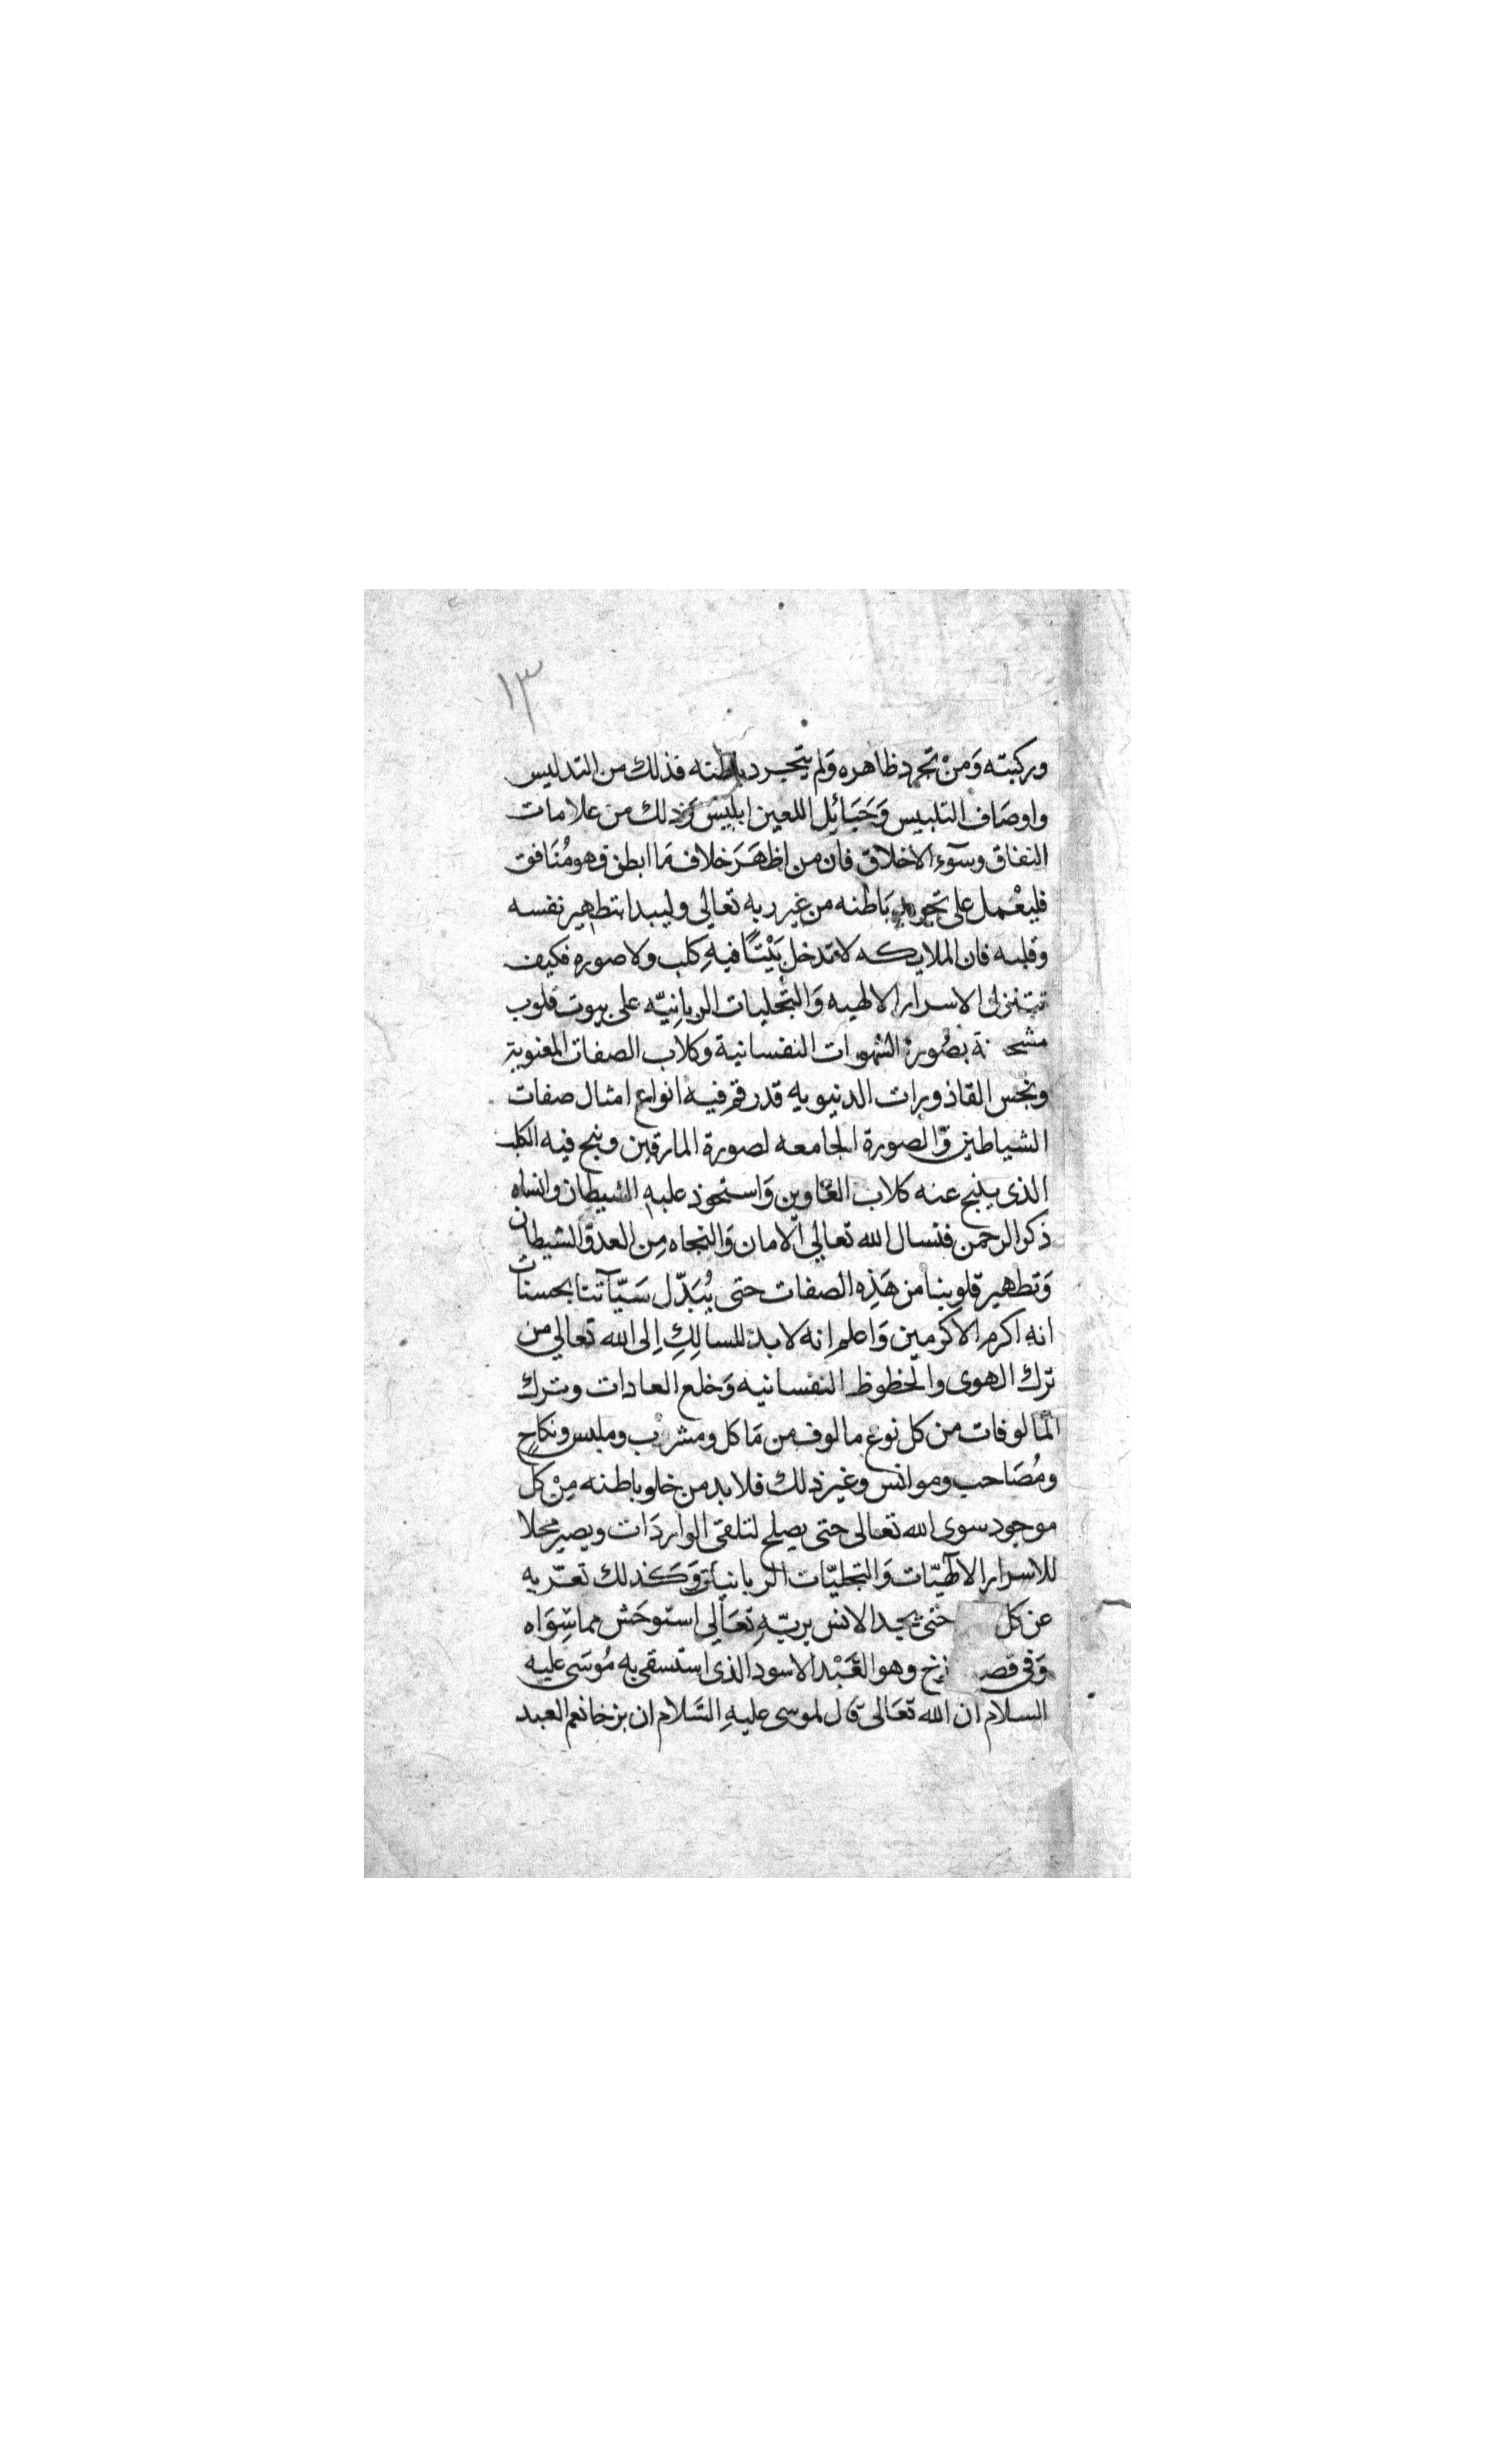 ١٣
وركبته وَمنْ تجرد ظاهره وَلم يتجرد باطنه فذلك من التدليس
واوصَاف التلبيس وَحَبَائِل اللعين ابليس وَذلك من علامات
النفاق وسوَء الاخلاق فان من اظهَرَ خلاف مَا ابطن فهو مُنَافق
فليعْمل على تجريد بَاطنه من غير ربه تعالى وليبدا بتطهير نفسه
وقلبه فان الملايكه لا تدخل بَيْتًا فيهِ كلب ولا صوره فكيف
تتنزل الاسرار الالهيه وَالتجليات الربانِيّه على بيوت قلوب
مشحـ نة بصُورة الشهوات النفسانية وكلاب الصفات المغنوية
ونجس القاذورات الدنيويه قد رقم فيه انواع امثال صفات
الشياطين وَالصورة الجامعه لصورة المارقين ونبح فيه الكلب
الذى ينبح عنه كلاب الغاوين وَاستحوذ عليه الشيطان وانساه
ذكر الرحمن فنسال الله تعالي الامان وَالنجاه مِن العدو الشيطان
وَتطهير قلوبنا من هَذِه الصفات حتى يُبَدّل سَيّآتنا بحسنات
انه اكرم الاكرمين وَاعلم انه لا بد للسالِكِ اِلى الله تعالي من
ترك الهوى والحظوظ النفسانيه وَخلع العادات وترك
المَالوفات من كل نوع مالوف من مَاكل ومشرب وملبس ونكاحٍ
ومُصَاحب وموانس وغير ذلك فلا بد من خلو باطنه مِنْ كل
موجود سوى الله تعالى حتى يصلح لتلقى الواردَات ويصير محلا
للاسرار الالهيّات وَالتجليّات الربانية وَكَذلك تعرّيه
عن كل حَتى يجد الانس بربّهِ تعَالي استوحَش مما سِوَاه
وَفي قصـ زخ وهو العَبْد الاسود الذى استسقى به مُوسَى عليه
السلام ان الله تعَالى قال لموسى عليهِ السَّلام ان برخا نعم العبد